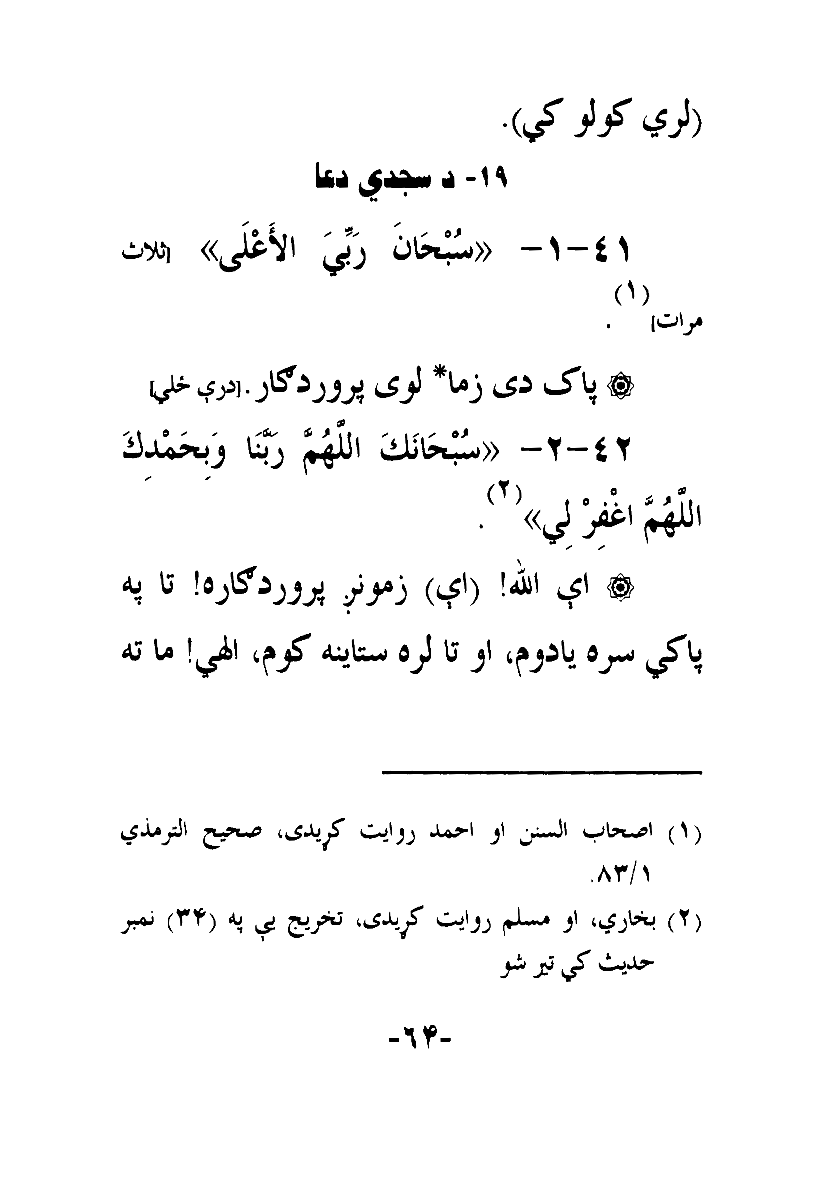 (لري کولو کي).
١٩- د سجدي دعا
٤١-١- «سُبْحَانَ رَبِّيَ الأَعْلَى» [ثلاث
مرات](١).
۞ پاک دی زما* لوی پروردګار.[درې ځلي]
٤٢-٢- «سُبْحَانَكَ اللَّهُمَّ رَبَّنَا وَبِحَمْدِكَ
اللَّهُمَّ اغْفِرْ لِي»(٢).
۞ اې الله! (اې) زمونږ پروردګاره! تا په
پاکي سره يادوم، او تا لره ستاينه کوم، الهي! ما ته
(١) اصحاب السنن او احمد روايت کړيدی، صحيح الترمذي
٨٣/١.
(٢) بخاري، او مسلم روايت کړيدی، تخريج يې په (۳۴) نمبر
حديث کي تير شو
-۶۴-